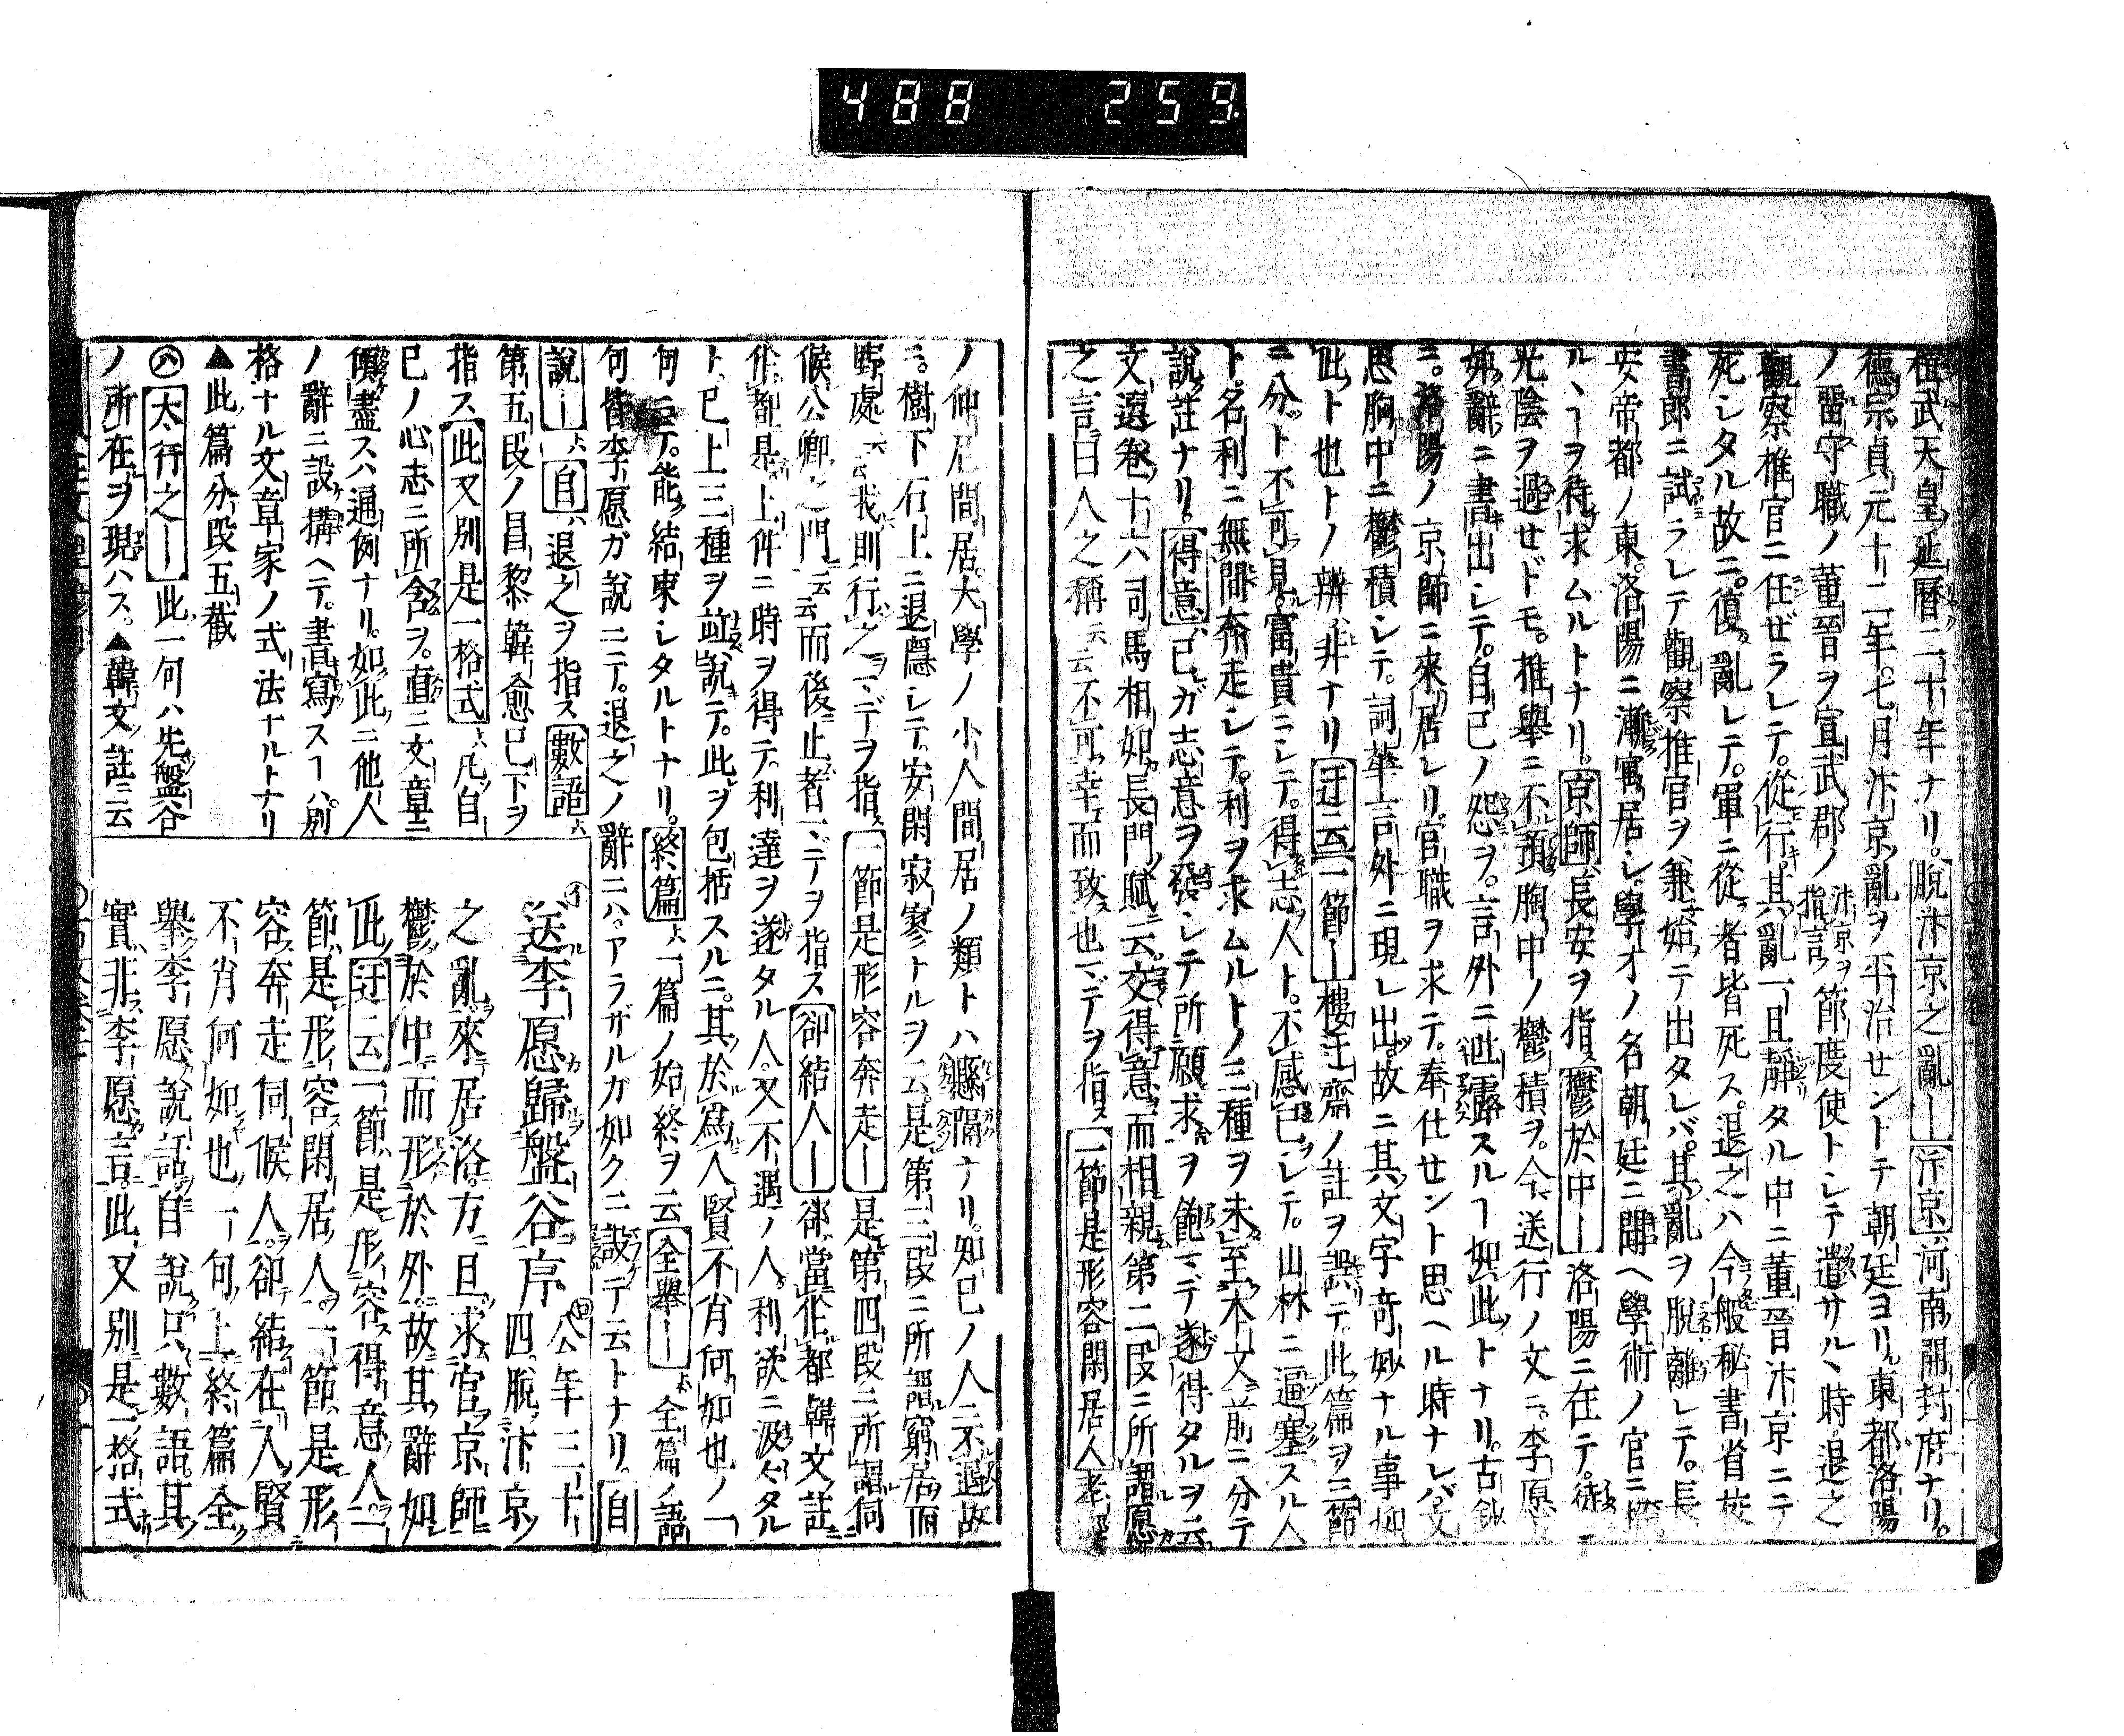 488 259
桓武天皇延暦二十年ナリ。脱汴京之亂ー汴京河南開封府ナリ。
德宗貞元十二年。七月汴京亂ヲ平治セントテ朝廷ヨリ。東都洛陽
ノ留守職ノ董晉ヲ宣武郡ノ汴京ヲ指言節度使トシテ遣サルヽ時。退之
觀察推官ニ任ゼラレテ。從行。其亂一旦靜タル中ニ董晉汴京ニテ
死シタル故ニ。復亂レテ。軍ニ從者皆死ス。退之ハ今般秘書省校
書郎ニ試ラレテ觀察推官ヲ兼始テ出タレバ。其亂ヲ脱離レテ。長
安帝都ノ東。洛陽ニ漸寓居シ。學才ノ名朝廷ニ聞ヘ學術ノ官ニ
ルヽヿヲ待求ムルトナリ。京師長安ヲ指鬱於中ー洛陽ニ在テ。徒
光陰ヲ過セドモ。推舉ニ不預胸中ノ鬱積ヲ。今送行ノ文ニ。李愿
歸辭ニ書出シテ。自己ノ怨ヲ。言外ニ泄露スルヿ如此トナリ。古
ニ。洛陽ノ京師ニ來居レリ。官職ヲ求テ。奉仕セント思ヘル時ナレバ。文
思胸中ニ鬱積シテ。詞華言外ニ現レ出。故ニ其文字奇妙ナル事如
此ト也トノ辨非ナリ迂云一節ー樓迂齋ノ註ヲ誤テ。此篇ヲ三節
ニ分。ト不可見。富貴ニシテ。得志人ト。不感已シテ。山林ニ逼塞スル人
ト。名利ニ無間奔走シテ。利ヲ求ムルトノ三種ヲ未至本文前ニ分テ
說註ナリ。得意已ガ志意ヲ發シテ所願求ヲ飽マデ遂得タルヲ云
文選卷十六司馬相如長門賦云。交得意而相親第二段ニ所謂愿
之言曰人之稱云云不可幸而致也マデヲ指一節是形容閑居人孝
ノ仲尼間居。大學ノ小人間居ノ類トハ懸隔ナリ。知己ノ人ニ不遇故
ニ。樹下石上ニ退隱シテ。安閑寂寥ナルヲ云。是第三段ニ所謂窮居而
野處云云我則行之マデヲ指一節是形容奔走ー是第四段ニ所謂伺
候公卿之門云云而後止者マデヲ指ス卻結人ー卻當作都韓文註
作都是上件ニ時ヲ得テ利達ヲ遂タル人。又不遇ノ人。利欲ニ汲々タル
ト。已上三種ヲ竝說テ。此ヲ包括スルニ。其於爲人賢不肖何如也ノ一
句ニテ。能結束シタルトナリ。終篇一篇ノ始終ヲ云全舉ー全篇ノ語
句皆李愿ガ說ニテ。退之ノ辭ニハ。アラザルガ如クニ設テ云トナリ。自
說ー自退之ヲ指ス數語
第五段ノ昌黎韓愈已下ヲ
指ス此又別是一格式凡自
已ノ心志ニ所含ヲ。直ニ文章ニ
傾盡スハ通例ナリ。如此ニ他人
ノ辭ニ設構ヘテ。書寫スヿハ。別
格ナル文章家ノ式法ナルトナリ
▲此篇分段五截
㊇太行之ー此一句ハ先盤谷
ノ所在ヲ現ハス。▲韓文註云
送李愿歸盤谷序 公年三十
四。脱汴京
之亂來居洛。方且求官京師
鬱於中而形於外。故其辭如
此迂云一節是形容得意人一
節是形容閑居人。一節是形
容奔走伺候人。卻結在人賢
不肖何如也一句上終篇全
舉李愿說話。自說只數語。其
實非李愿言。此又別是一格式